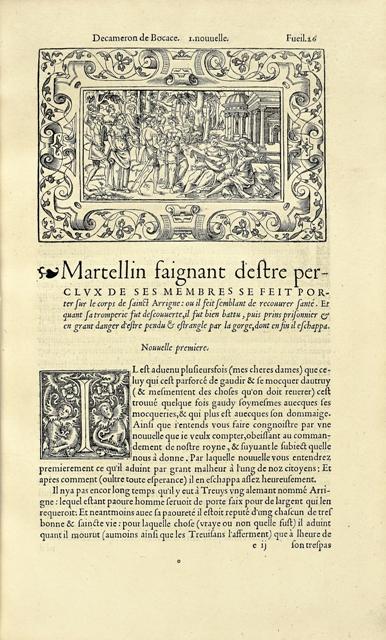 Decameron de Bocace. 1.nouuelle. Fueil.26
Martellin faignant d'estre per-
CLVX DE SES MEMBRES SE FEIT POR-
ter sur le corps de sainct Arrigue: ou il feit semblant de recouurer santé. Et
quant sa tromperie fut descouuerte, il fut bien battu, puis prins prisonnier &
en grant danger d'estre pendu & estrangle par la gorge, dont en fin il eschappa.
Nouuelle premiere.
IL est aduenu plusieursfois (mes cheres dames) que ce-
luy qui cest parforcé de gaudir & se mocquer dautruy
(& mesmement des choses qu'on doit reuerer) cest
trouué quelque fois gaudy soymesmes auecques ses
mocqueries, & qui plus est auecques son dommaige.
Ainsi que i'entends vous faire congnoistre par vne
nouuelle que ie veulx compter, obeissant au comman-
dement de nostre royne, & suyuant le subiect quelle
nous à donne. Par laquelle nouuelle vous entendrez
premierement ce qu'il aduint par grant malheur à l'ung de noz citoyens: Et
apres comment (oultre toute esperance) il en eschappa assez heureusement.
Il nya pas encor long temps qu'il y eut à Treuys vng alemant nommé Arri-
gue: lequel estant paoure homme seruoit de porte faix pour de largent qui len
requeroit: Et neantmoins auec sa paoureté il estoit reputé d'ung chascun de tres
bonne & saincte vie: pour laquelle chose (vraye ou non quelle fust) il aduint
quant il mourut (aumoins ainsi que les Treuisans l'afferment) que à lheure de
e ij son trespas